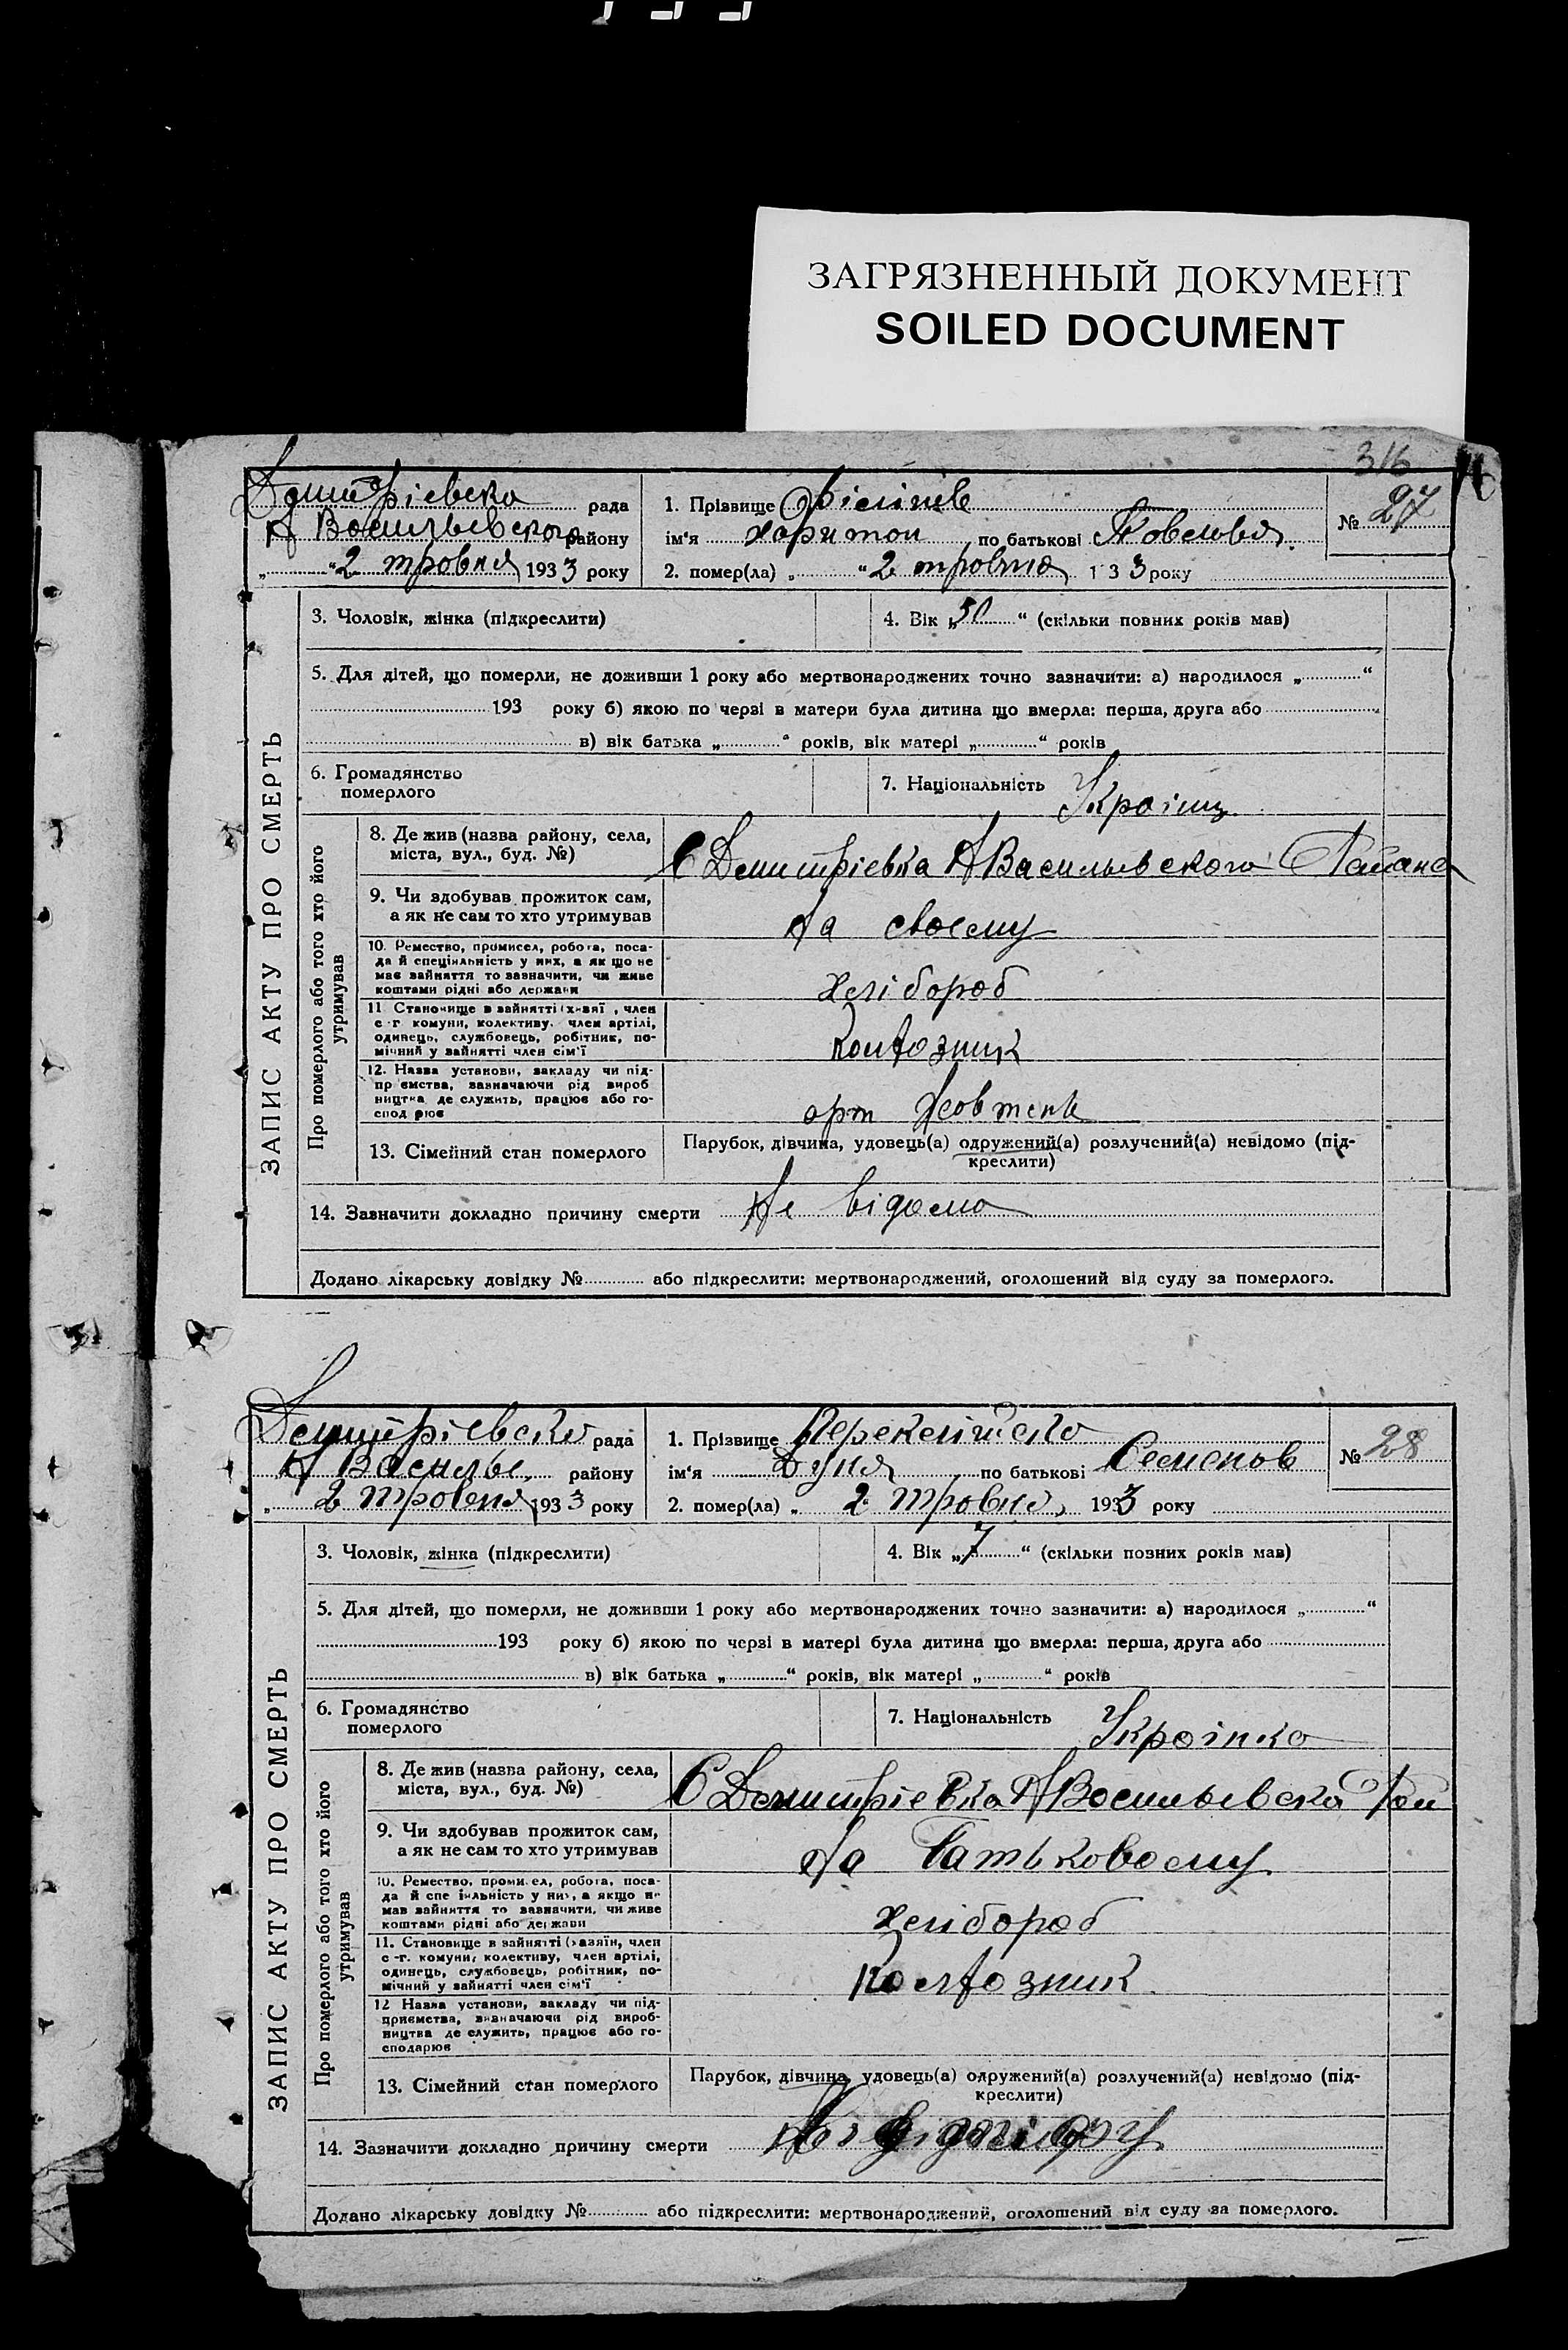 ЗАГРЯЗНЕННЫЙ ДОКУМЕНТ
SOILED DOCUMENT
316
Дмитрієвска рада
Н Васильевского району
„ “ 2 травня 1933 року
1. Прізвище Філіпів
ім‘я Харитон по батькові Павельев.
2. помер(ла) „ “ 2 травня 1 3 3 року
№ 27
ЗАПИС АКТУ ПРО СМЕРТЬ
3. Чоловік, жінка (підкреслити)
4. Вік „50“ (скільки повних років мав)
5. Для дітей, що померли, не доживши 1 року або мертвонароджених точно зазначити: а) народилося „ “
193 року б) якою по черзі в матери була дитина що вмерла: перша, друга або
в) вік батька „ “ років, вік матері „ “ років
6. Громадянство
померлого
7. Національність Украінц
Про померлого або того хто його
утримував
8. Де жив (назва району, села,
міста, вул., буд. №)
С Дмитрієвка Н Васильевского Района
9. Чи здобував прожиток сам,
а як не сам то хто утримував
На своєму
10. Ремество, промисел, робота, поса-
да й спеціяльність у них, а як що не
має зайняття то зазначити, чи живе
коштами рідні або держави
Хлібороб
11 Становище в зайнятті (х зяї , член
с -г комуни, колективу, член артілі,
одинець, службовець, робітник, по-
мічний у зайнятті член сім'ї
Колгозник
12. Назва установи, закладу чи під-
пр ємства, зазначаючи рід вироб
ництва де служить, працює або го-
спод рює
арт Жовтень
13. Сімейний стан померлого
Парубок, дівчина, удовець(а) одружений(а) розлучений(а) невідомо (під-
креслити)
14. Зазначити докладно причину смерти Не відомо
Додано лікарську довідку № або підкреслити: мертвонароджений, оголошений від суду за померлого.
Дмитрієвска рада
Н Василье. району
„ 2 травня 1933 року
1. Прізвище
ім‘я Дуня по батькові Семенов
2. помер(ла) „ 2 травня, 1933 року
№ 28
ЗАПИС АКТУ ПРО СМЕРТЬ
3. Чоловік, жінка (підкреслити)
4. Вік „7“ (скільки повних років мав)
5. Для дітей, що померли, не доживши 1 року або мертвонароджених точно зазначити: а) народилося „ “
193 року б) якою по черзі в матері була дитина що вмерла: перша, друга або
в) вік батька „ “ років, вік матері „ “ років
6. Громадянство
померлого
7. Національність Украінка
Про померлого або того хто його
утримував
8. Де жив (назва району, села,
міста, вул., буд. №)
С Дмитрієвка Н Васильевска Рай
9. Чи здобував прожиток сам,
а як не сам то хто утримував
На Батьковоему
10. Ремество, промисел, робота, поса-
да й спе іяльність у них, а якщо не
мав зайняття то зазначити, чи живе
коштами рідні або держави
Хлібороб
11. Становище в зайнятті (хазяїн, член
с -г. комуни, колективу, член артілі,
одинець, службовець, робітник, по-
мічний у зайнятті член сім'ї
Колгозник
12 Назва установи, закладу чи під-
приємства, визначаючи рід вироб-
ництва де служить, працює або го-
сподарює
13. Сімейний стан померлого
Парубок, дівчина, удовець(а) одружений(а) розлучений(а) невідомо (під-
креслити)
14. Зазначити докладно причину смерти
Додано лікарську довідку № або підкреслити: мертвонароджений, оголошений від суду за померлого.